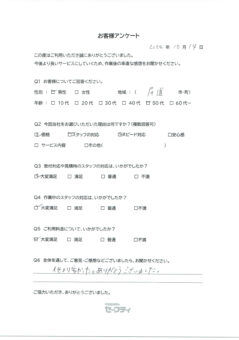 お客様アンケート
年10月14日
この度はご利用いただき誠にありがとうございました。
今後より良いサービスにしていくため、作業後の率直な感想をお聞かせください。
Q1 お客様についてご回答ください。
性別: ☑男性 □女性 地域:( 市・町)
年齢: □10代 □20代 □30代 □40代 ☑50代 □60代~
Q2 今回当社をお選びいただいた理由は何ですか?(複数回答可)
☑価格 ☑スタッフの対応 ☑スピード対応 □安心感
□サービス内容 □その他( )
Q3 受付対応や見積時のスタッフの対応は、いかがでしたか?
☑大変満足 □満足 □普通 □不満
Q4 作業中のスタッフの対応は、いかがでしたか?
☑大変満足 □満足 □普通 □不満
Q5 ご利用料金について、いかがでしたか?
☑大変満足 □満足 □普通 □不満
Q6 全体を通して、ご意見・ご感想などございましたら、お聞かせください。
ありがとうございました。
ご協力いただき、ありがとうございました。
セーフティ